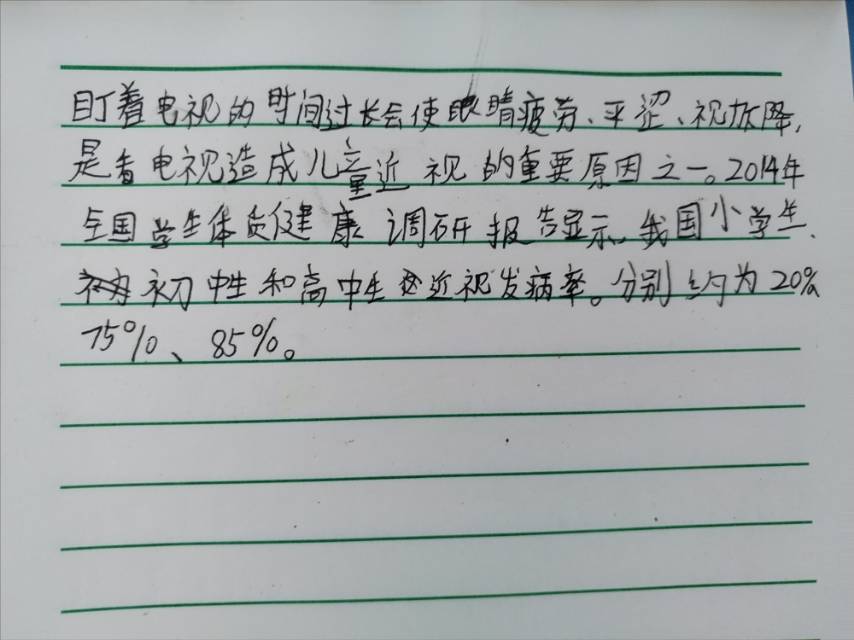 盯着电视的时间过长会使眼睛疲劳、平涩、视力下降,
是看电视造成儿童近视的重要原因之一。2014年
全国学生体质健康调研报告显示,我国小学生、
初中生和高中生近视发病率。分别约为20%
75%、85%。